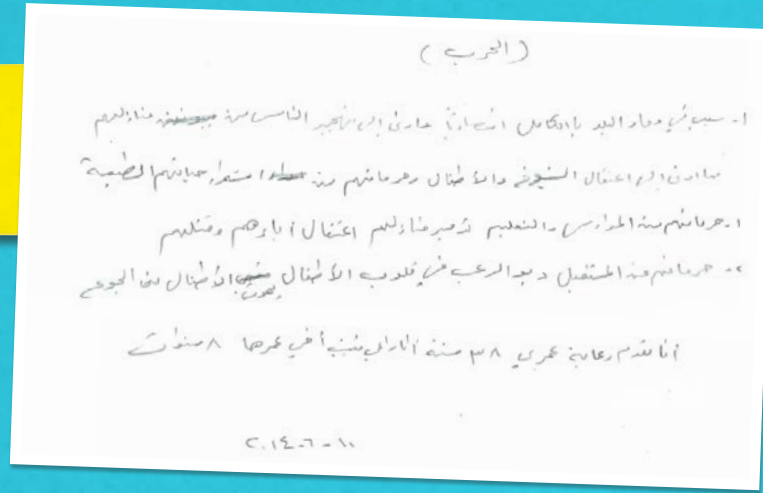 (الحرب)
١. سبب في دمار البلد بالكامل اقتصادياً مادى إلى تهجير الناس من منازلهم
مما ادى إلى اعتقال الشيوخ والأطفال وحرمانهم من استمرار حياتهم الطبيعية
١. حرمانهم من المدارس والتعليم تدمير منازلهم اعتقال أباءهم وقتلهم
٢. حرمانهم من المستقبل الرعب في قلوب الأطفال يموت الأطفال من الجوع
أنا مقدم رعاية عمري ٣٨ سنة عمرها ٨ سنوات
١٠-٦-٢٠١٤